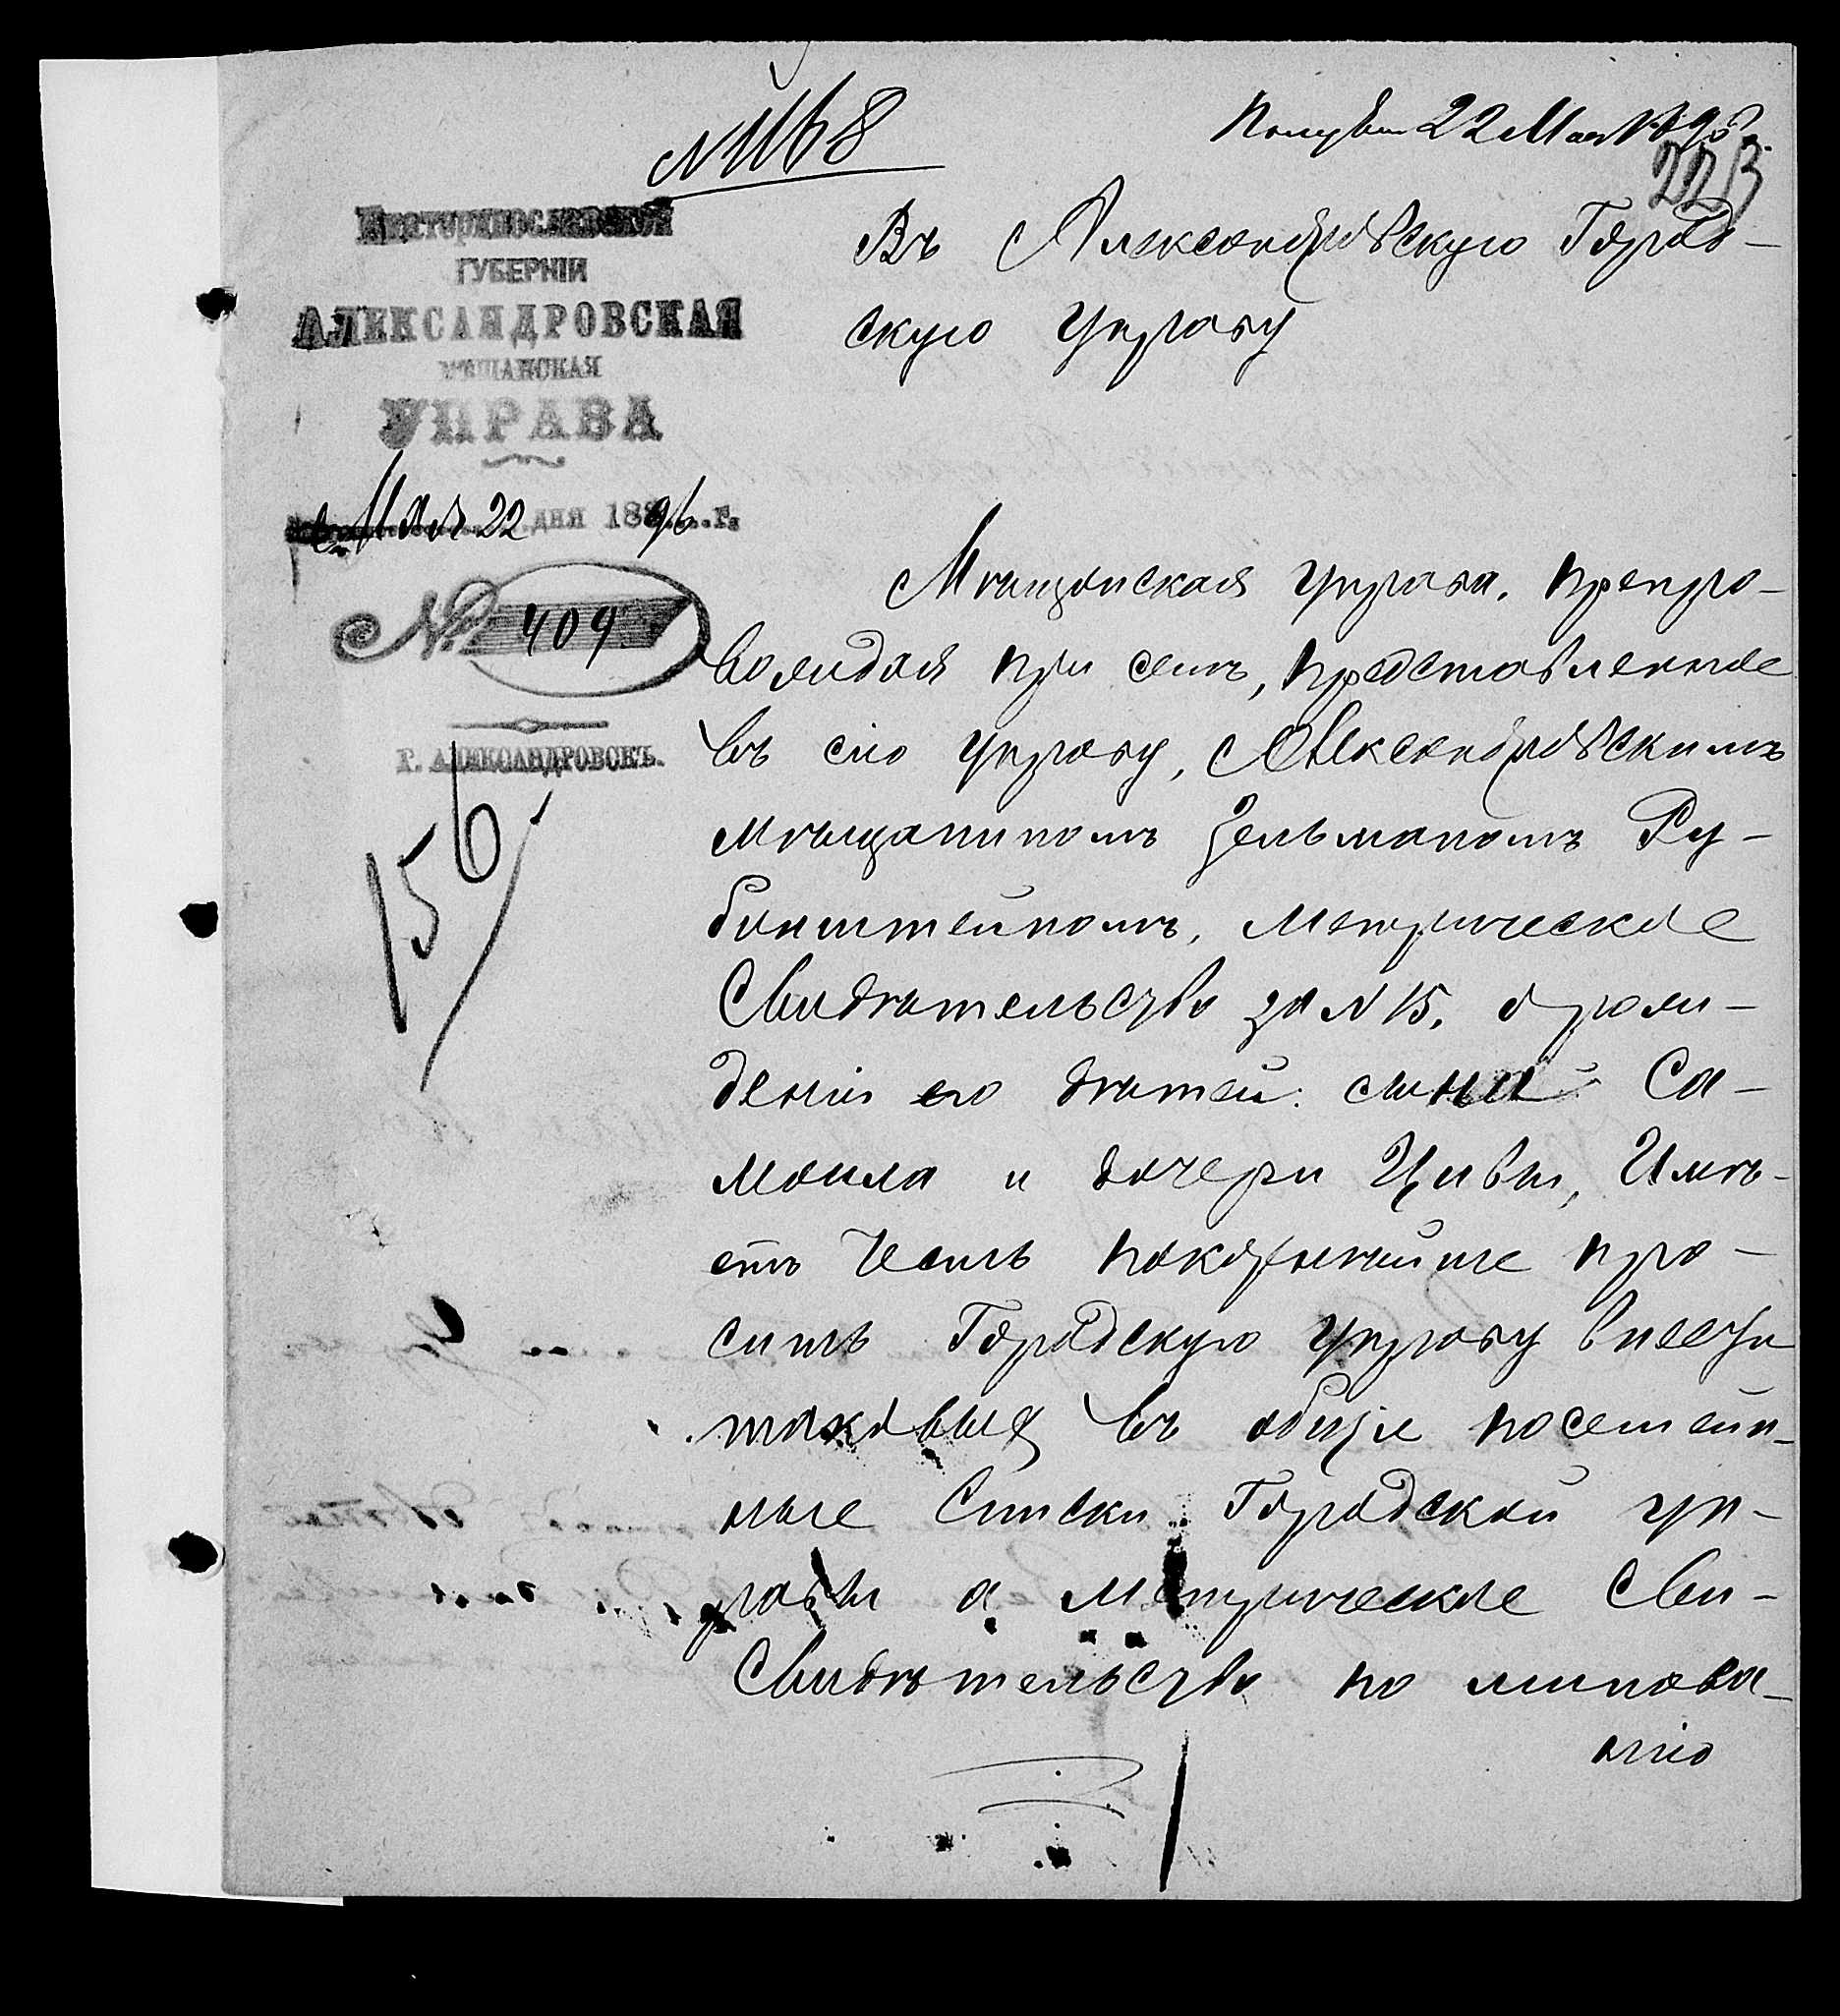 № 1168
Получен 22 Мая 1896 г.
223
Екатеринославской
ГУБЕРНІИ
АЛЕКСАНДРОВСКАЯ
МѢЩАНСКАЯ
УПРАВА
Мая 22 дня 1896 г.
№ 409
Г. АЛЕКСАНДРОВСКЪ.
156
Въ Александровскую Город-
скую Управу
Мѣщанская Управа, препро-
вождая при семъ, представленное
въ сію Управу, Александровскимъ
мѣщаниномъ Зельманомъ Ру-
бинштейномъ, метрическое
Свидѣтельство за № 15, о рож-
деніи его дѣтей: сына Са-
моила и дочери Цивы, Имѣ-
етъ честь покорнѣйше про-
ситъ Городскую Управу внести
таковыя въ общіе посемей-
ные Списки Городской Уп-
равы а метрическое Сви-
Свидѣтельство по минова-
нію